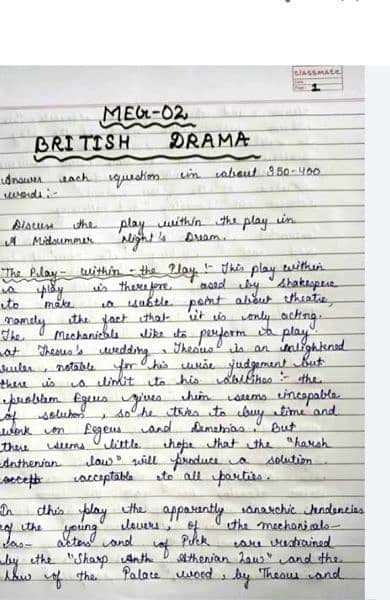 CLASSMATE
Date
Page 1
MEG-02
BRITISH DRAMA
Answer each question in about 350-400
words :-
Discuss the play within the play in
A Midsummer Night's Dream.
The Play - within - the Play :- This play within
a play is therefore, used by Shakespere
to make a subtle point about theatre,
namely the fact that it is only acting.
The Mechanicals like to perform a play
at Theseus's wedding. Theseus is an enlightened
ruler, notable for his wise judgement but
there is a limit to his abilities :- the
problem Egeus gives him seems incapable
of solution, so he tries to buy time and
work on Egeus and Demetrius. But
there seems little hope that the "harsh
Anthenian law" will produce a solution
accept acceptable to all parties.
In this play the apparently anarchic tendencies
of the young lovers, of the mechanicals-
as- actors and of Puck are restrained
by the "Sharp Anth Athenian Law" and the
law of the Palace wood, by Theseus and